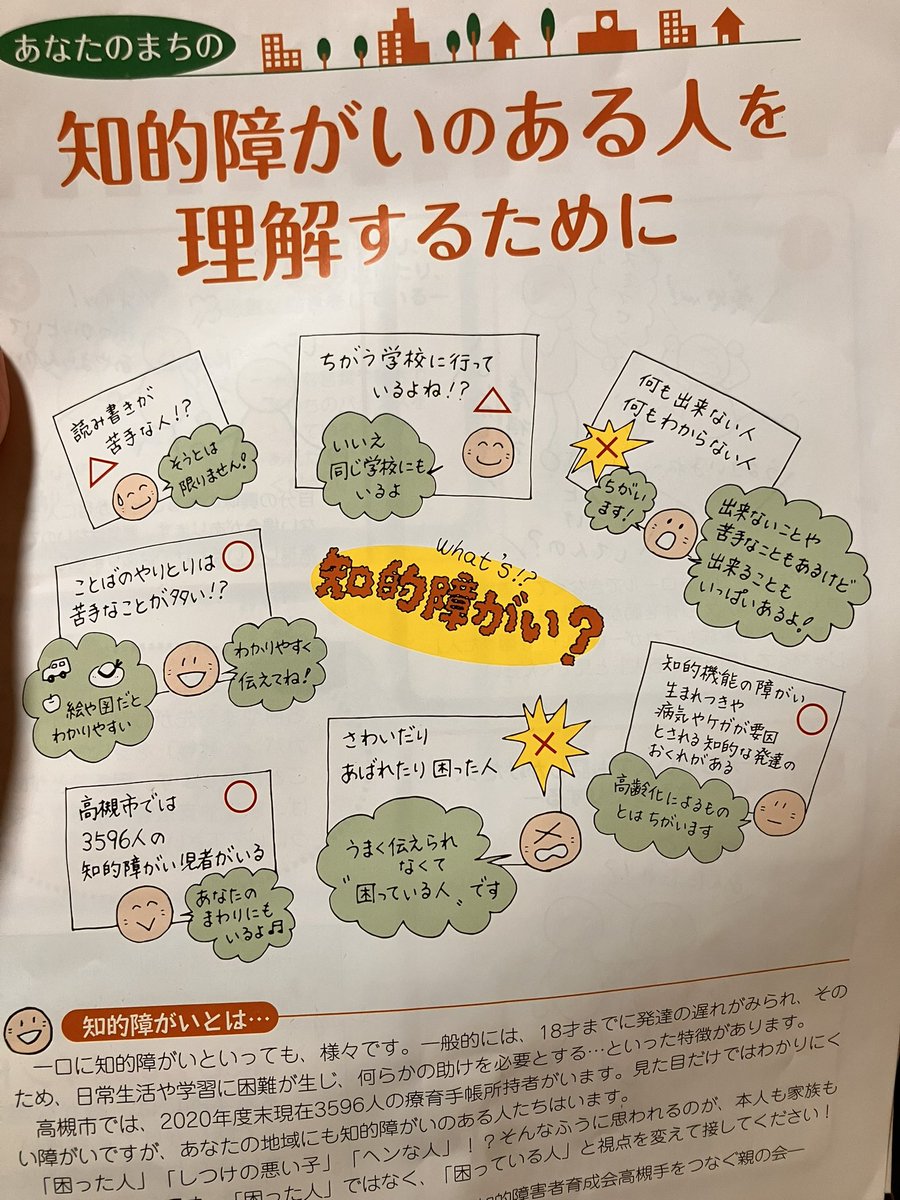 あなたのまちの
知的障がいのある人を
理解するために
読み書きが
苦手な人!?
そうとは
限りません!
ちがう学校に行って
いるよね!?
いいえ
同じ学校にも
いるよ
何も出来ない人
何もわからない人
ちがい
ます!
出来ないことや
苦手なこともあるけど
出来ることも
いっぱいあるよ!
ことばのやりとりは
苦手なことが多い!?
わかりやすく
伝えてね!
絵や図だと
わかりやすい
what's!?
知的障がい?
知的機能の障がい
生まれつきや
病気やケガが要因
とされる知的な発達の
おくれがある
高齢化によるもの
とはちがいます
さわいだり
あばれたり困った人
うまく伝えられ
なくて
"困っている人"です
高槻市では
3596人の
知的障がい児者がいる
あなたの
まわりにも
いるよ♬
知的障がいとは…
一口に知的障がいといっても、様々です。一般的には、18才までに発達の遅れがみられ、その
ため、日常生活や学習に困難が生じ、何らかの助けを必要とする…といった特徴があります。
高槻市では、2020年度末現在3596人の療育手帳所持者がいます。見た目だけではわかりにく
い障がいですが、あなたの地域にも知的障がいのある人たちはいます。
「困った人」「しつけの悪い子」「ヘンな人」!?そんなふうに思われるのが、本人も家族も
「困った人」ではなく、「困っている人」と視点を変えて接してください!
知的障害者育成会高槻手をつなぐ親の会―